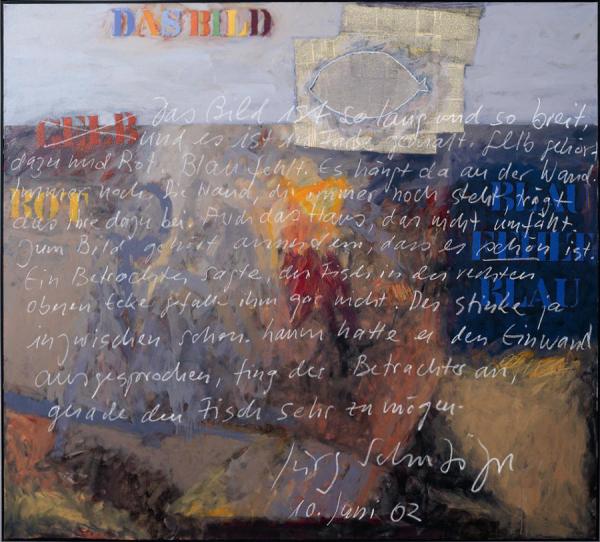 DAS BILD
GELB
ROT
BLAU
FEHLT
BLAU
Das Bild ist so lang und so breit,
und es ist in Farbe gemalt. Gelb gehört
dazu und Rot. Blau fehlt. Es hängt da an der Wand.
Immer noch. Die Wand, die immer noch steht trägt
das ihre dazu bei. Auch das Haus, das nicht umfällt.
Zum Bild gehört ausserdem, dass es schön ist.
Ein Betrachter sagte, der Fisch in der rechten
oberen Ecke gefalle ihm gar nicht. Der stinke ja
inzwischen schon. kaum hatte er den Einwand
ausgesprochen, fing der Betrachter an,
gerade den Fisch sehr zu mögen.
Jürg
10. Juni 02